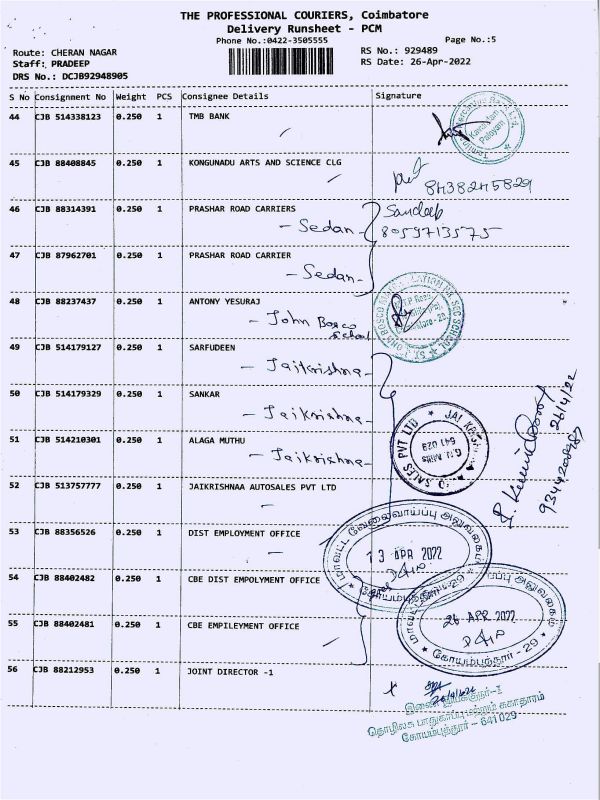 THE PROFESSIONAL COURIERS, Coimbatore
Delivery Runsheet - PCM
Phone No.:0422-3505555
Page No.:5
Route: CHERAN NAGAR
RS No.: 929489
Staff: PRADEEP
RS Date: 26-Apr-2022
DRS No.: DCJB92948905
S No Consignment No Weight PCS Consignee Details Signature
44 CJB 514338123 0.250 1 TMB BANK
45 CJB 88408845 0.250 1 KONGUNADU ARTS AND SCIENCE CLG
8438245829
46 CJB 88314391 0.250 1 PRASHAR ROAD CARRIERS
Sandeep
- Sedan - 8059713575
47 CJB 87962701 0.250 1 PRASHAR ROAD CARRIER
- Sedan -
48 CJB 88237437 0.250 1 ANTONY YESURAJ
- John Bosco
School
49 CJB 514179127 0.250 1 SARFUDEEN
- Jaikrishna -
50 CJB 514179329 0.250 1 SANKAR
- Jaikrishna -
51 CJB 514210301 0.250 1 ALAGA MUTHU
- Jaikrishna -
SALES PVT LTD * JAI
G.N. Mills
641 029
26/4/22
52 CJB 513757777 0.250 1 JAIKRISHNAA AUTOSALES PVT LTD
53 CJB 88356526 0.250 1 DIST EMPLOYMENT OFFICE
மாவட்ட வேலைவாய்ப்பு அலுவலகம்
13 APR 2022
54 CJB 88402482 0.250 1 CBE DIST EMPOLYMENT OFFICE
26 APR 2022
55 CJB 88402481 0.250 1 CBE EMPILEYMENT OFFICE
* கோயம்புத்தூர் - 29 *
56 CJB 88212953 0.250 1 JOINT DIRECTOR -1
இணை இயக்குநர்-I
தொழிலக பாதுகாப்பு மற்றும் சுகாதாரம்
கோயம்புத்தூர் - 641 029